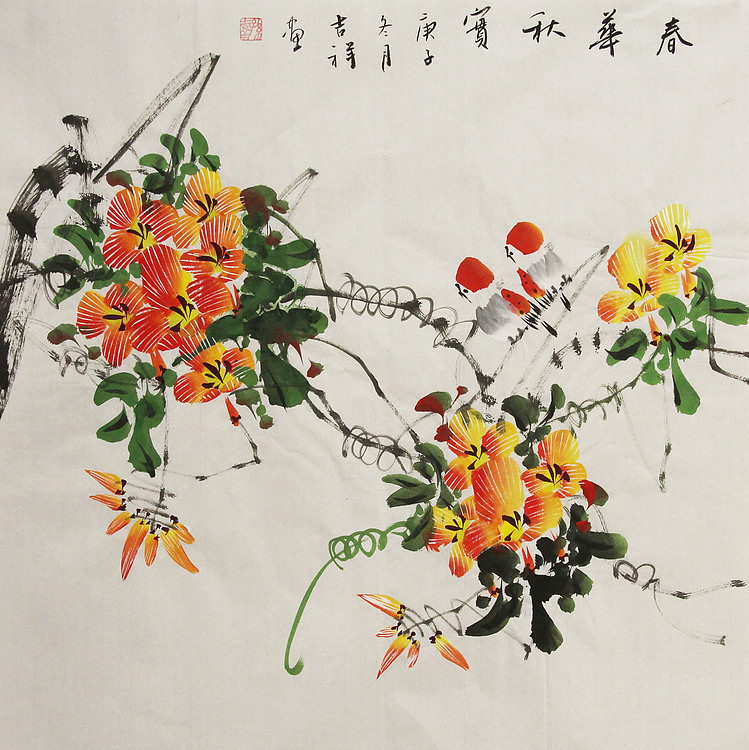 春華秋實
庚子
冬月
吉祥
画